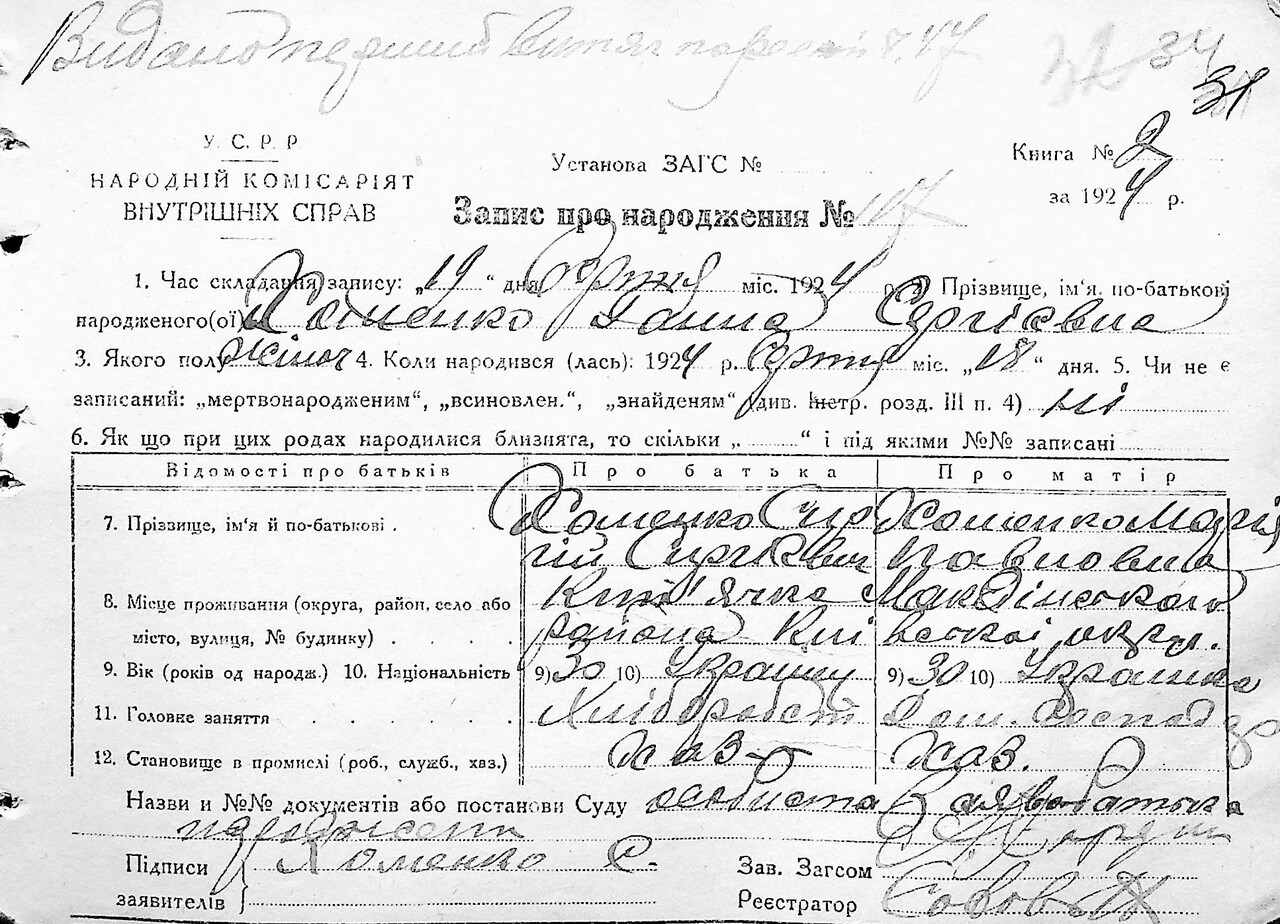 Видано перший витяг
32 34
31
У. С. Р. Р.
НАРОДНІЙ КОМІСАРІЯТ
ВНУТРІШНІХ СПРАВ
Установа ЗАГС №
Книга № 2
за 1924 р.
Запис про народження № 117
1. Час складання запису: „19 “ дня серпня міс. 1924 р. 2. Прізвище, ім'я, по-батькові
народженого(ої) Хоменко Ганна Сергієвна
3. Якого полу жіноч 4. Коли народився (лась): 1924 р. серпня міс. „18 “ дня. 5. Чи не є
записаний: „мертвонародженим“, „всиновлен.“, „знайденям“ (див. Інстр. розд. III п. 4) ні
6. Як що при цих родах народилися близнята, то скільки „ “ і під якими №№ записані
Відомості про батьків Про батька Про матір
7. Прізвище, ім'я й по-батькові . Хоменко Сер Хоменко Марія
гій Сергієвич Павловна
8. Місце проживання (округа, район, село або Макдінського
місто, вулиця, № будинку) . . . . района Киі вської округи.
9. Вік (років од народж.) 10. Національність 9) 30 10) Украінец 9) 30 10) Украинка
11. Головне заняття . . . . . . Хлібороб Дом. господар
12. Становище в промислі (роб., служб., хвз.) Хаз-о Хаз.
Назви и №№ документів або постанови Суду особиста заява батька
Підписи Хоменко С. Зав. Загсом
заявителів Реєстратор